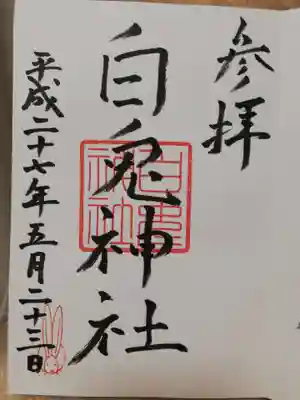 参拝
白兎神社
平成二十七年五月二十三日
白兎神社